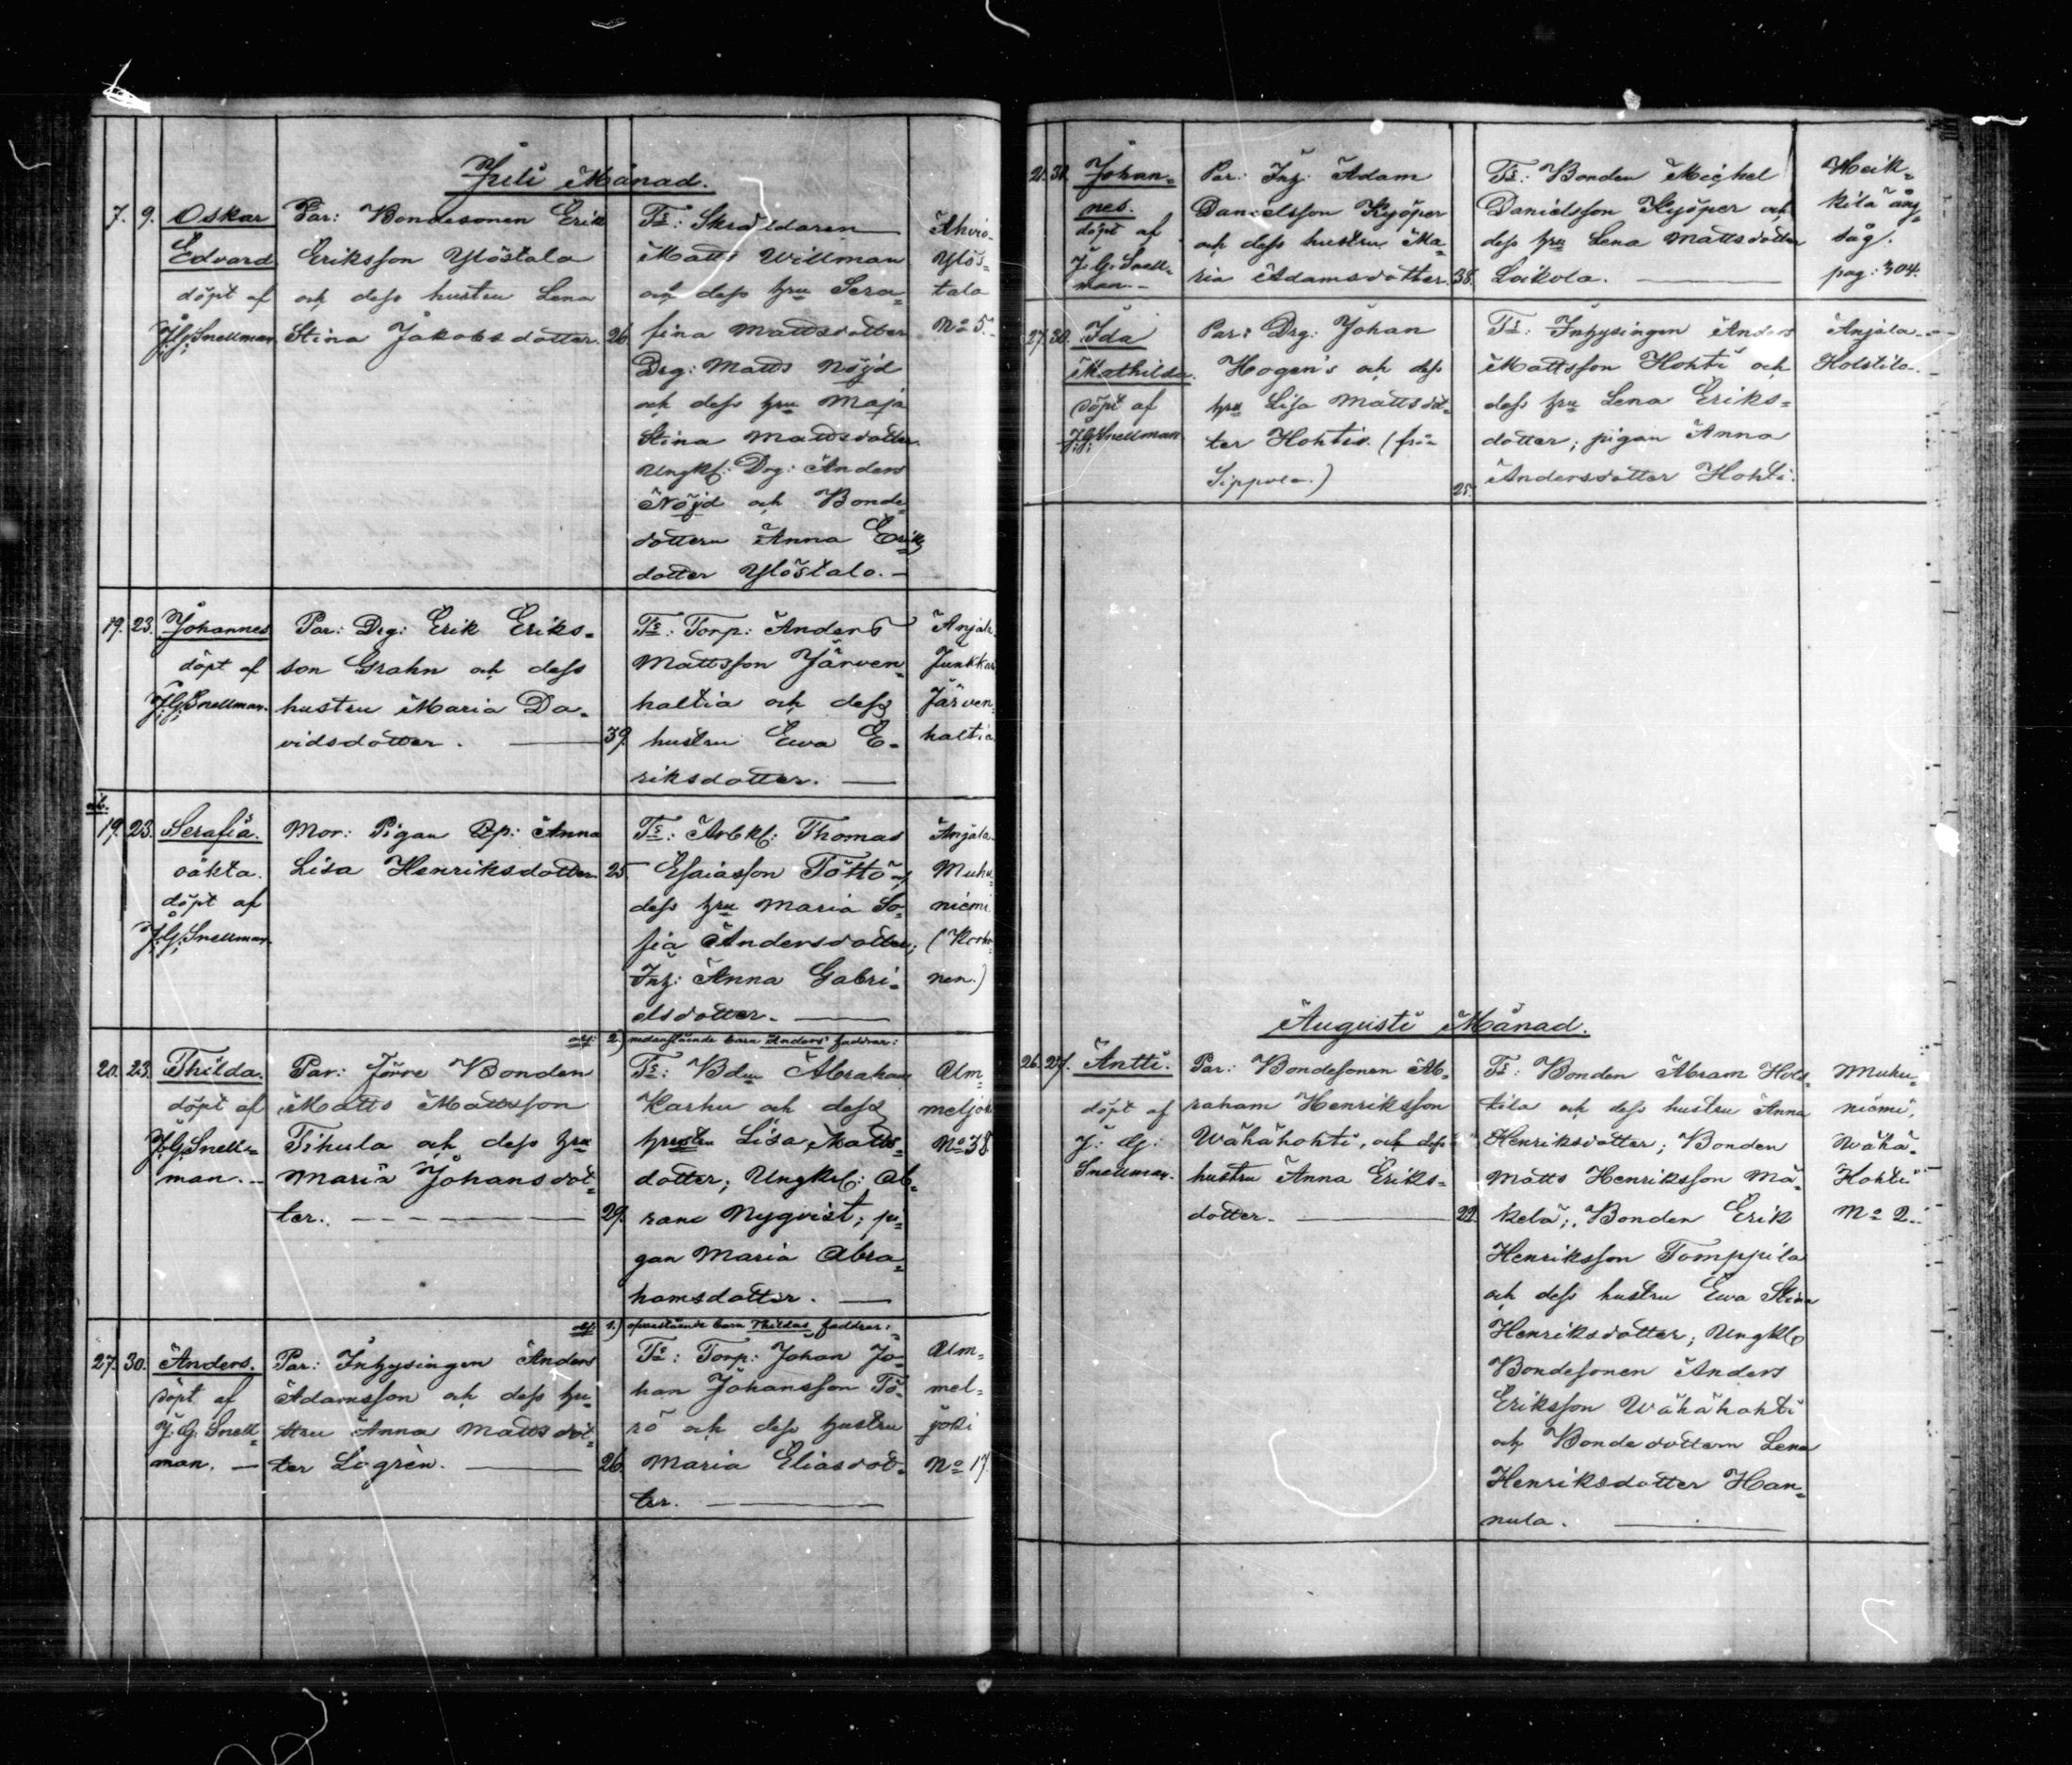 Juli Månad.
7. 9. Oskar
Edvard
döpt af
J. G. Snellman.
Par: Bondesonen Erik
Eriksson Ylöstalo
och dess hustru Lena
Stina Jakobsdotter. 26.
Ts: Skräddaren
Matts Willman
och dess hru Sera=
fina Mattsdotter
Drg: Matts Nöjd
och dess hru Maja
Stina Mattsdotter.
Ungkl: Drg: Anders
Nöjd och Bonde
dottern Anna Eriks
dotter Ylöstalo. —
Ahvio.
Ylös=
talo
No 5.
19. 23. Johannes
döpt af
J. G. Snellman.
Par: Drg: Erik Eriks=
son Grahn och dess
hustru Maria Da=
vidsdotter. — 39.
Ts: Torp: Anders
Mattsson Järven=
haltia och dess
hustru Ewa E=
riksdotter. —
Anjala.
Junkkari
Järven=
haltia
19. 23. Serafia.
oäkta.
döpt af
J. G. Snellman.
Mor: Pigan Anna
Lisa Henriksdotter 25.
Ts: Arbkl: Thomas
Esaiasson Töttö och
dess hru Maria So=
fia Andersdotter;
Inh: Anna Gabri=
elsdotter. —
Anjala.
Muhu=
niemi
nen.)
obs: 2.) nedanstående barn Anders' faddrar:
20. 23. Thilda.
döpt af
J. G. Snell=
man. —
Par: Förre Bonden
Matts Mattsson
Tihula och dess hru
Maria Johansdot=
ter. — 29.
Ts: Bdn Abraham
Karhu och dess
hustru Lisa Matts=
dotter; Ungkrl: Ab=
ram Nyqvist; pi=
gan Maria Abra=
hamsdotter. —
Alm=
meljoki
No 38
obs: 1.) ofvanstående barn Thildas faddrar:
27. 30. Anders.
döpt af
J. G. Snell=
man. —
Par: Inhysingen Anders
Adamsson och dess hu=
stru Anna Mattsdot=
ter Logrèn. — 26.
Ts: Torp: Johan Jo=
han Johansson Tö=
rö och dess hustru
Maria Eliasdot=
ter. —
Alm=
mel=
joki
No 17.
21. 30. Johan=
nes.
döpt af
J. G. Snell=
man. —
Par: Inh: Adam
Danielsson Kyöper
och dess hustru Ma=
ria Adamsdotter. 38.
Ts: Bonden Michel
Danielsson Kyöper och
dess hru Lena Mattsdotter
Laikola. —
Heik=
kilä ång=
såg.
pag: 304.
27. 30. Ida
Mathilda.
döpt af
J. G. Snellman
Par: Drg: Johan
Hagen's och dess
hru Lisa Mattsdot=
ter Hohti. (frå
Sippola.) 25.
Ts: Inhysingen Anders
Mattsson Hohti och
dess hru Lena Eriks=
dotter; pigan Anna
Andersdotter Hohti.
Anjala.
Holstila.
Augusti Månad.
26. 27. Antti.
döpt af
J: G:
Snellman.
Par: Bondesonen Ab=
raham Henriksson
Wähähohti, och dess
hustru Anna Eriks=
dotter. — 22.
Ts: Bonden Abram Hols=
tila och dess hustru Anna
Henriksdotter; Bonden
Matts Henriksson Mä=
kelä; Bonden Erik
Henriksson Tomppila
och dess hustru Ewa Stina
Henriksdotter; Ungkl:
Bondesonen Anders
Eriksson Wähähohti
och Bonde dottern Lena
Henriksdotter Han=
nula. —
Muhu=
niemi,
Wähä=
Hohti
No 2.